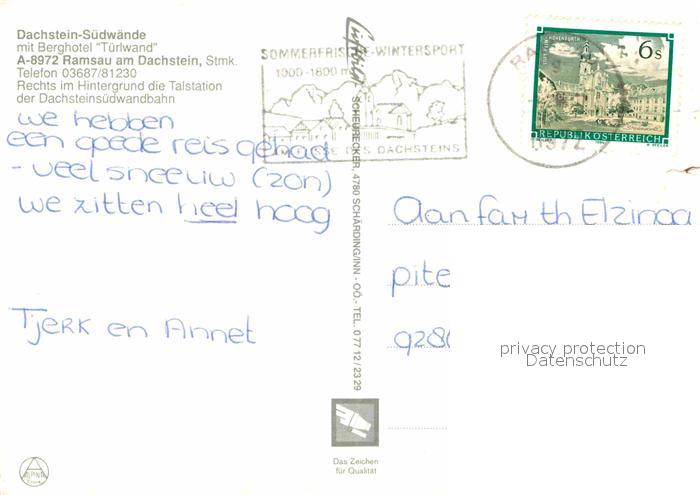 Dachstein-Südwände
mit Berghotel "Türlwand"
A-8972 Ramsau am Dachstein, Stmk.
Telefon 03687/81230
Rechts im Hintergrund die Talstation
der Dachsteinsüdwandbahn
we hebben
een goede reis gehad
- veel sneeuw (zon)
we zitten heel hoog
Tjerk en Annet
SOMMERFRISCHE-WINTERSPORT
1000-1800 m
DES DACHSTEINS
Luftbild
SCHEUERECKER, 4780 SCHÄRDING/INN - OÖ. - TEL. 0 77 12 / 23 29
6s
REPUBLIK ÖSTERREICH
Aan fam th Elzinga
pite
928
privacy protection
Datenschutz
Das Zeichen
für Qualität
ALPINA